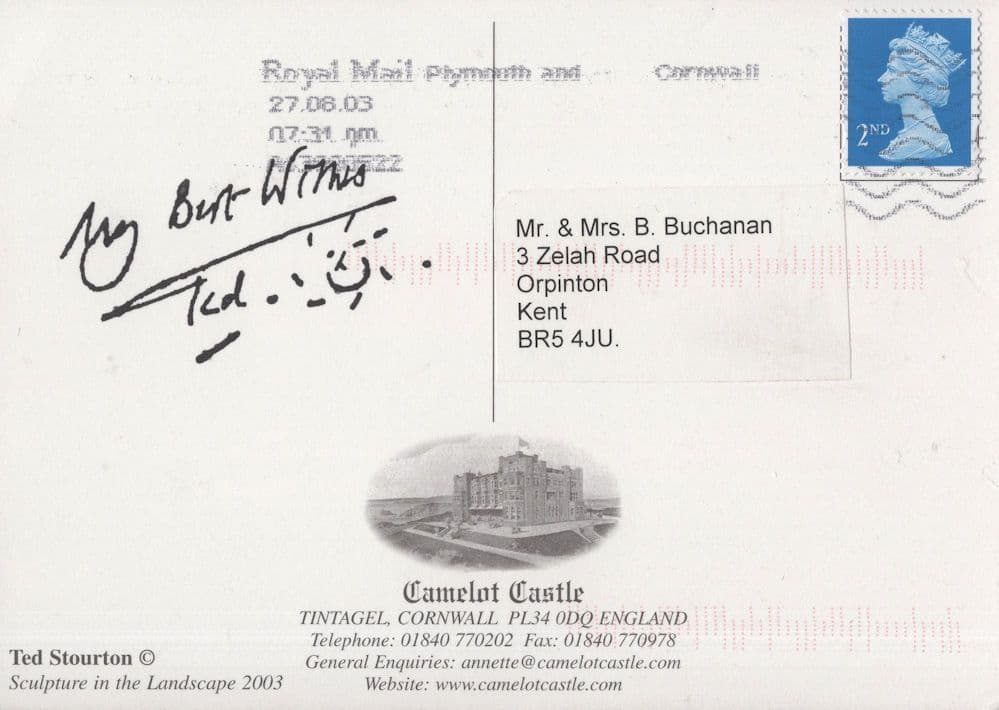 Royal Mail Plymouth and Cornwall
27.08.03
07-31 pm
2ND
My Best Wishes
Ted.
Mr. & Mrs. B. Buchanan
3 Zelah Road
Orpinton
Kent
BR5 4JU.
Camelot Castle
TINTAGEL, CORNWALL PL34 0DQ ENGLAND
Telephone: 01840 770202 Fax: 01840 770978
General Enquiries: annette@camelotcastle.com
Website: www.camelotcastle.com
Ted Stourton ©
Sculpture in the Landscape 2003